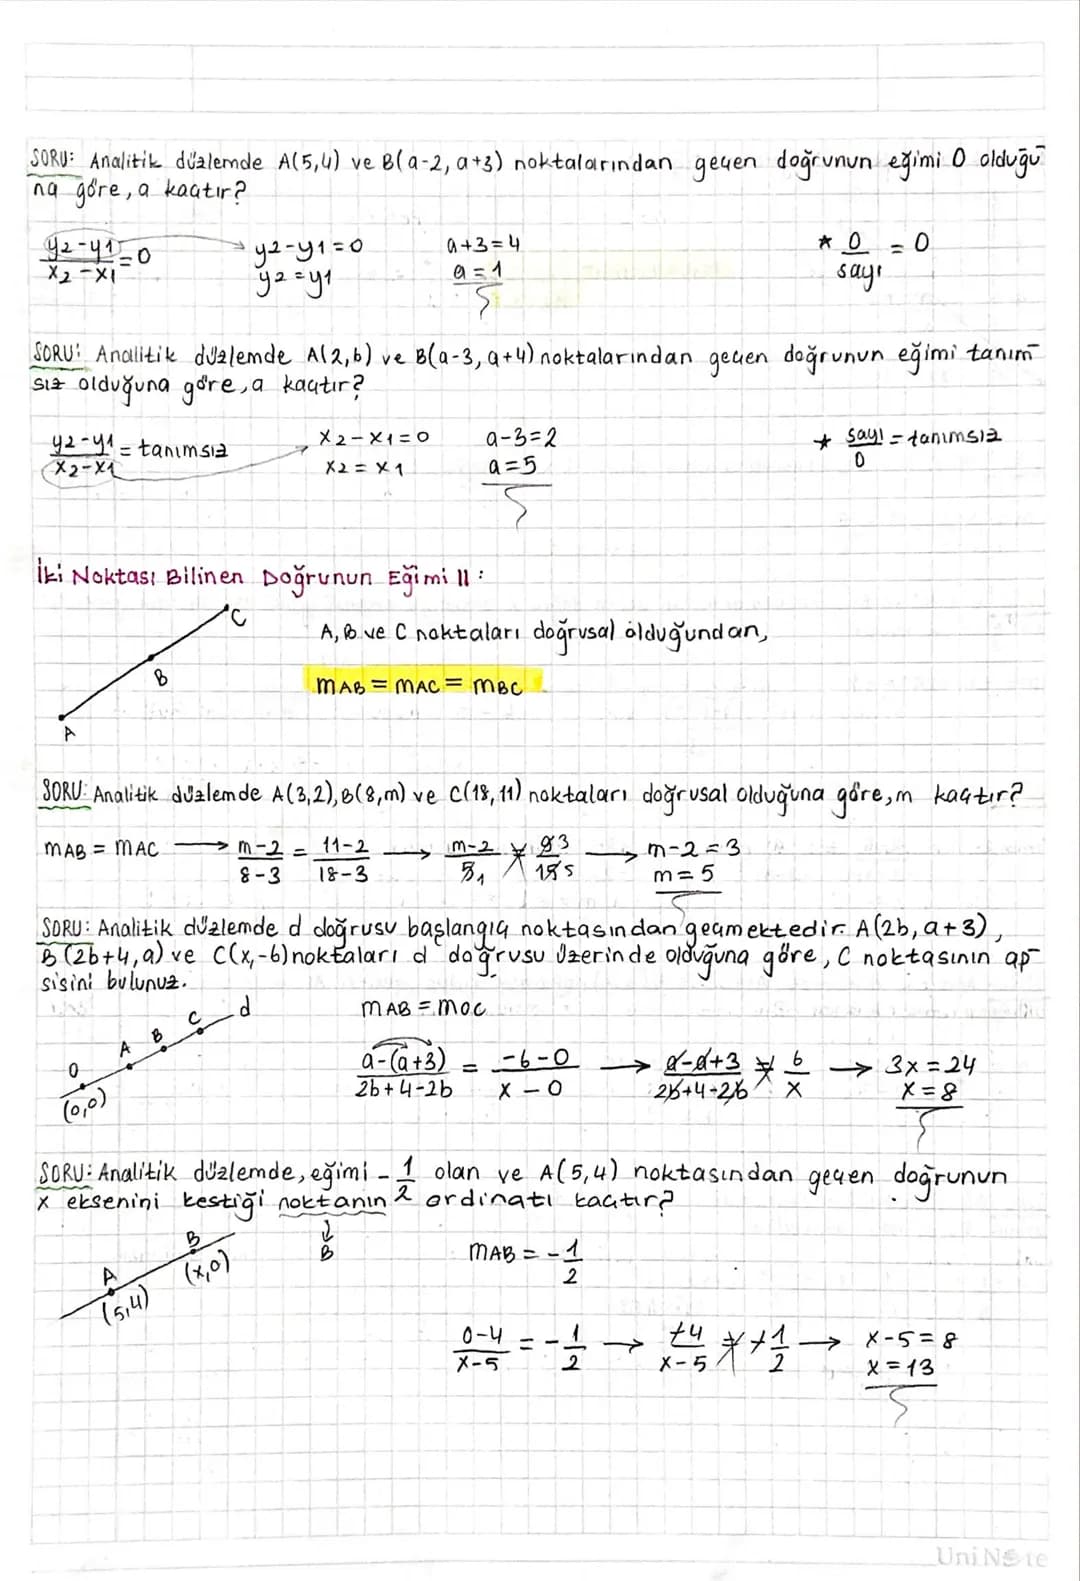 SORU: Analitik düzlemde A(5,4) ve B(a-2, a+3) noktalarından geçen doğrunun eğimi 0 olduğu
na göre, a kaçtır?
y2-y1/x2-x1 = 0 → y2-y1=0 a+3=4 * 0/sayı = 0
y2=y1 a=1
SORU: Analitik düzlemde A(2,b) ve B(a-3, a+4) noktalarından geçen doğrunun eğimi tanım
sız olduğuna göre, a kaçtır?
y2-y1/x2-x1 = tanımsız → x2-x1=0 a-3=2 * sayı/0 = tanımsız
x2=x1 a=5
İki Noktası Bilinen Doğrunun Eğimi II:
C
A, B ve C noktaları doğrusal olduğundan,
B
mAB = mAC = mBC
A
SORU: Analitik düzlemde A(3,2), B(8,m) ve C(18,11) noktaları doğrusal olduğuna göre, m kaçtır?
mAB = mAC → m-2/8-3 = 11-2/18-3 → m-2/5 1 = 9 3/15 5 → m-2=3
m=5
SORU: Analitik düzlemde d doğrusu başlangıç noktasından geçmektedir. A(2b, a+3),
B(2b+4,a) ve C(x,-6) noktaları d doğrusu üzerinde olduğuna göre, C noktasının ap
sisini bulunuz.
0 A B C d
(0,0)
mAB = m0C
a-(a+3)/2b+4-2b = -6-0/x-0 → a-a+3/2b+4-2b = 6/x → 3x=24
x=8
SORU: Analitik düzlemde, eğimi -1/2 olan ve A(5,4) noktasından geçen doğrunun
x eksenini kestiği noktanın ordinatı kaçtır?
↓
B
A B
(5,4) (x,0)
mAB = -1/2
0-4/x-5 = -1/2 → +4/x-5 = +1/2 → x-5=8
x=13
UniNote